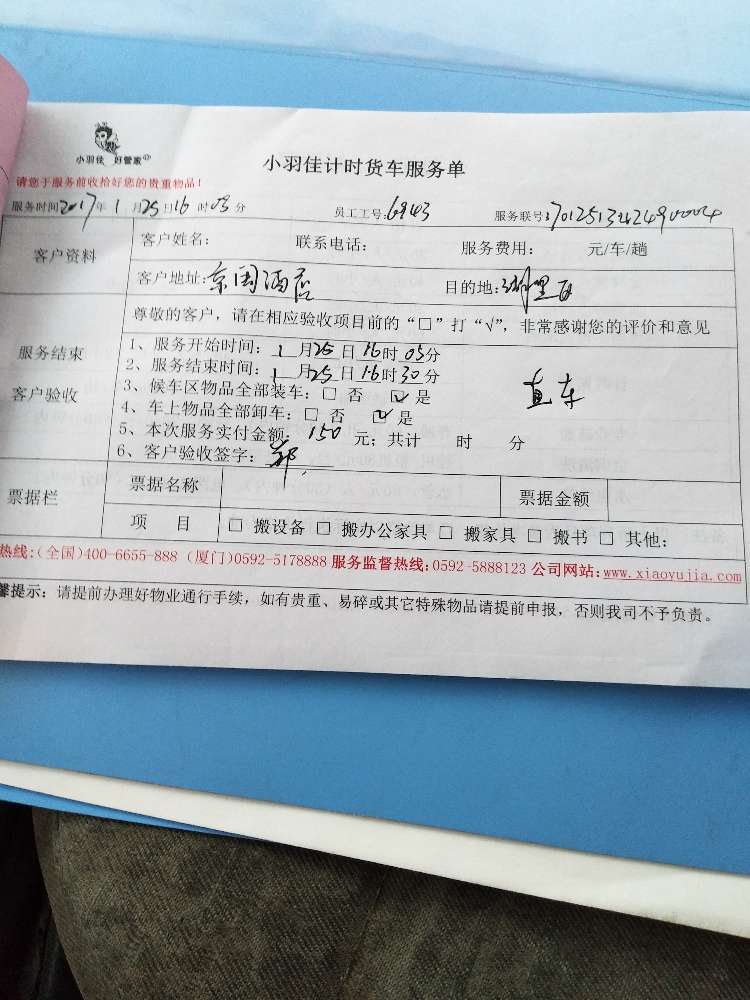 小羽佳 好管家
小羽佳计时货车服务单
请您于服务前收拾好您的贵重物品！
服务时间2017年1月25日16时05分 员工工号:6943 服务联号:
客户资料
客户姓名: 联系电话: 服务费用: 元/车/趟
客户地址: 京闽酒店 目的地: 湖里
尊敬的客户，请在相应验收项目前的“□”打“√”，非常感谢您的评价和意见
服务结束
客户验收
1、服务开始时间: 1月25日16时05分
2、服务结束时间: 1月25日16时30分
3、候车区物品全部装车: □ 否 ☑ 是
4、车上物品全部卸车: □ 否 ☑ 是
5、本次服务实付金额: 150 元; 共计 时 分
6、客户验收签字: 郑
直车
票据栏
票据名称 票据金额
项 目 □ 搬设备 □ 搬办公家具 □ 搬家具 □ 搬书 □ 其他:
热线:(全国)400-6655-888 (厦门)0592-5178888 服务监督热线:0592-5888123 公司网站:www.xiaoyujia.com
馨提示: 请提前办理好物业通行手续，如有贵重、易碎或其它特殊物品请提前申报，否则我司不予负责。